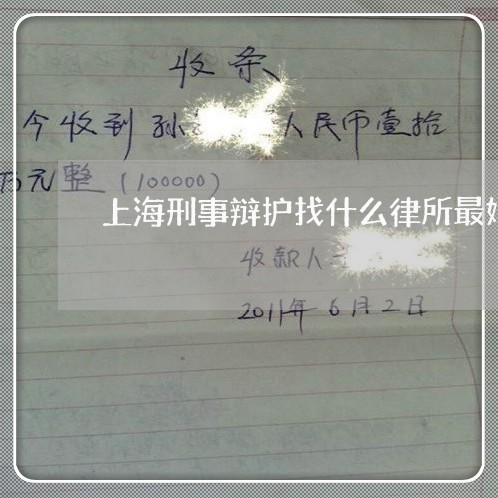 收条
今收到孙 人民币壹拾
万元整(100000)
上海刑事辩护找什么律所最
收款人
2011年6月2日